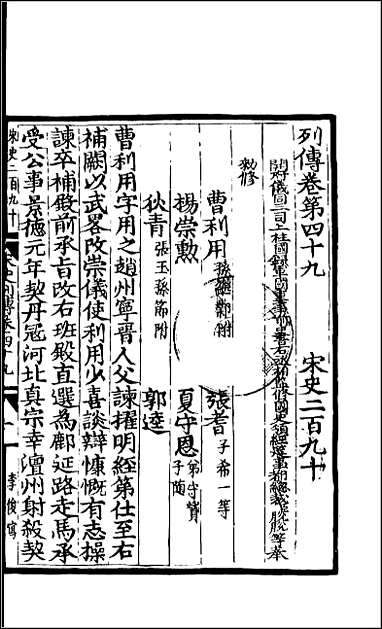 列傳卷第四十九 宋史二百九十
開府儀同三司上柱國錄軍國重事前中書右丞相監修國史領經筵事都總裁脫脫等奉
勑修
曹利用 孫繼鄴附 張耆 子希一等
楊崇勲 夏守恩 弟守贇 子隨
狄青 張玉孫節附 郭逵
曹利用字用之趙州寧晉人父諫擢明經第仕至右
補闕以武略改崇儀使利用少喜談辯慷慨有志操
諫卒補殿前承旨改右班殿直選為鄜延路走馬承
受公事景德元年契丹冦河北真宗幸澶州射殺契
宋史二百九十
宋史列傳卷四十九
一
李俊寫